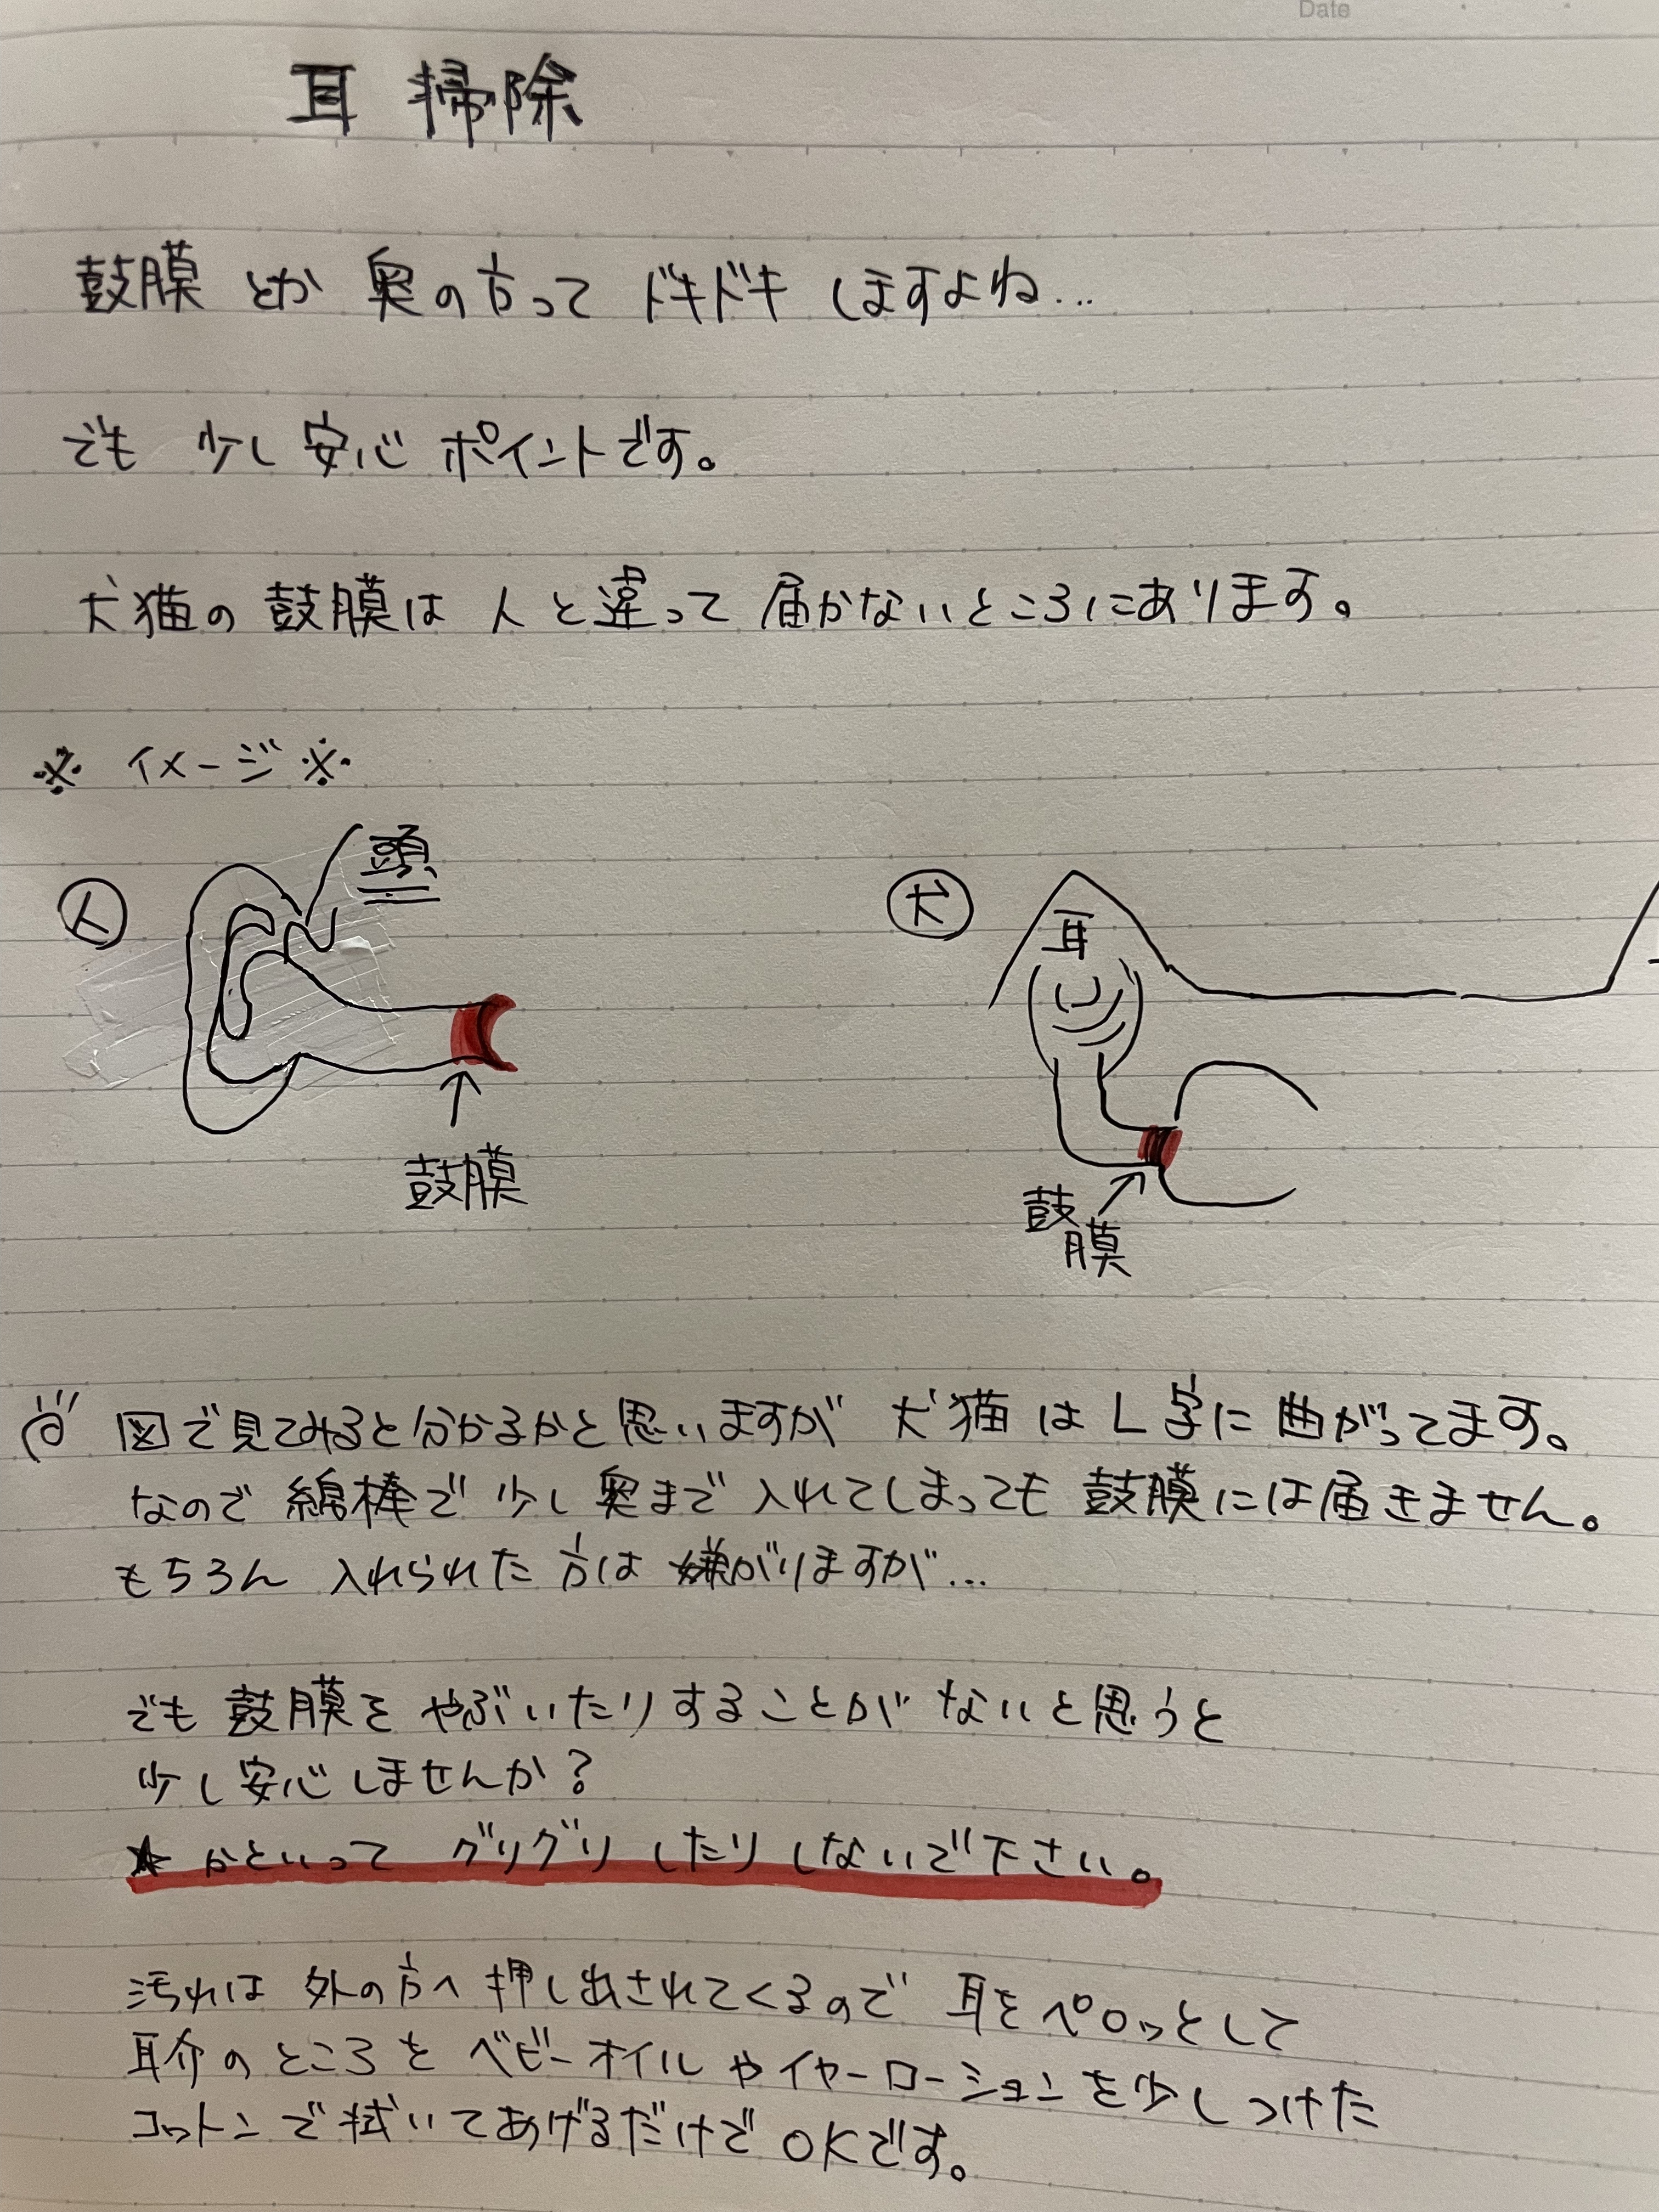 Date
耳掃除
鼓膜とか奥の方ってドキドキしますよね…
でも少し安心ポイントです。
犬猫の鼓膜は人と違って届かないところにあります。
※イメージ※
人
頭
鼓膜
犬
耳
鼓
膜
図で見てみると分かるかと思いますが犬猫はL字に曲がってます。
なので綿棒で少し奥まで入れてしまっても鼓膜には届きません。
もちろん入れられた方は嫌がりますが…
でも鼓膜をやぶいたりすることがないと思うと
少し安心しませんか？
★かといってグリグリしたりしないで下さい。
汚れは外の方へ押し出されてくるので耳をペロッとして
耳介のところをベビーオイルやイヤーローションを少しつけた
コットンで拭いてあげるだけでOKです。